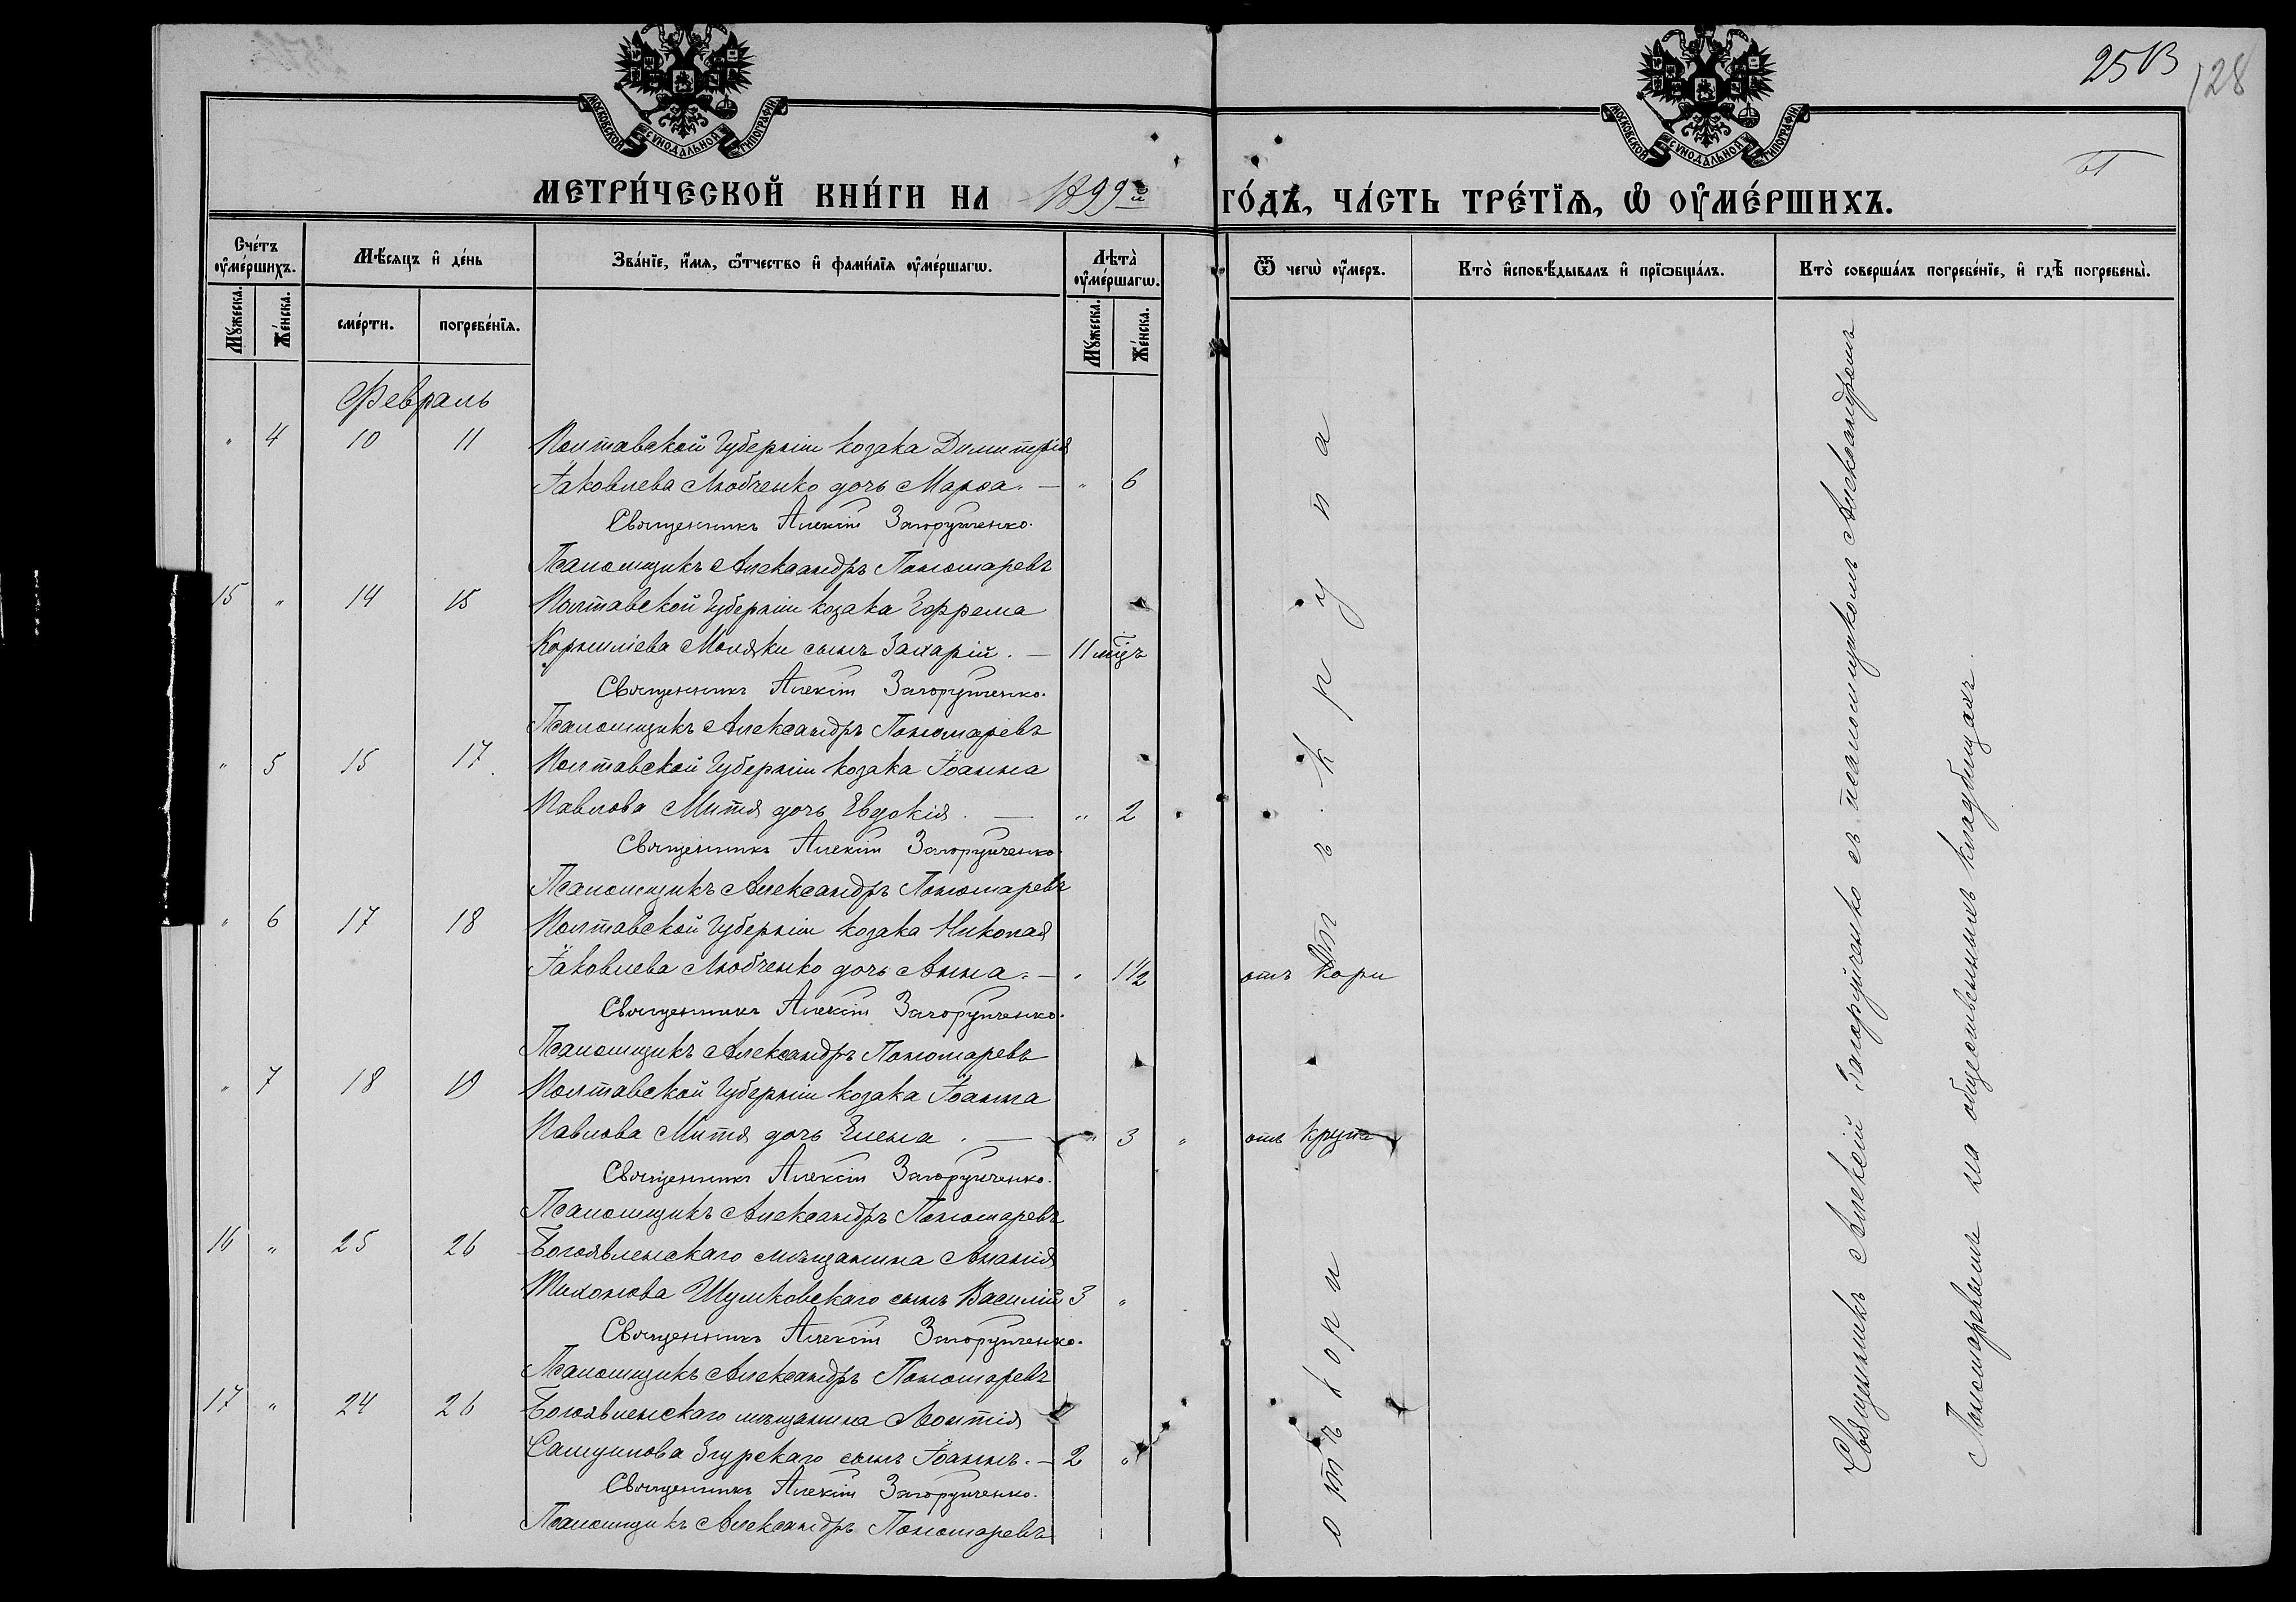 25 В
128
МОСКОВСКОЙ СѴНОДАЛЬНОЙ ТИПОГРАФІИ.
МОСКОВСКОЙ СѴНОДАЛЬНОЙ ТИПОГРАФІИ.
МЕТРИ́ЧЕСКОЙ КНИ́ГИ НА 1899й ГО́ДЪ, ЧА́СТЬ ТРЕ́ТІѦ, Ѡ ОУ҆МЕ́РШИХЪ.
Сче́тъ оу҆ме́ршихъ.
Мѣ́сяцъ и҆ де́нь
Зва́ніе, и҆́мя, ѻ҆́тчество и҆ фами́лїя оу҆ме́ршагѡ.
Лѣ́та оу҆ме́ршагѡ.
Ѿ чегѡ̀ оу҆́меръ.
Кто̀ и҆сповѣ́дывалъ и҆ прїѡбща́лъ.
Кто̀ соверша́лъ погребе́нїе, и҆ гдѣ̀ погребены̀.
Мꙋ́жеска.
Же́нска.
сме́рти.
погребе́нїя.
Мꙋ́жеска.
Же́нска.
Февраль
" 4 10 11 Полтавской Губерніи козака Димитрія
Іаковлева Любченко дочь Марѳа. — " 6
Священникъ Алексій Загорульченко.
Псаломщикъ Александръ Пономаревъ
15 " 14 15 Полтавской Губерніи козака Ефрема
Корнилієва Моляки сынъ Захарій. — 11 мцъ
Священникъ Алексій Загорульченко.
Псаломщикъ Александръ Пономаревъ
" 5 15 17 Полтавской Губерніи козака Іоанна
Павлова Митя дочь Евдокія. — " 2
Священникъ Алексій Загорульченко.
Псаломщикъ Александръ Пономаревъ
Отъ крупа
" 6 17 18 Полтавской Губерніи козака Николая
Іаковлева Любченко дочь Анна. — " 1½ отъ кори
Священникъ Алексій Загорульченко.
Псаломщикъ Александръ Пономаревъ
" 7 18 19 Полтавской Губерніи козака Іоанна
Павлова Митя дочь Елена. — " 3 " отъ крупа
Священникъ Алексій Загорульченко.
Псаломщикъ Александръ Пономаревъ
16 " 25 26 Богоявленскаго мѣщанина Ананія
Тихонова Шумковскаго сынъ Василій 3 "
Священникъ Алексій Загорульченко.
Псаломщикъ Александръ Пономаревъ
17 " 24 26 Богоявленскаго мѣщанина Леонтія
Самуилова Згурскаго сынъ Іоаннъ. — 2 "
Священникъ Алексій Загорульченко.
Псаломщикъ Александръ Пономаревъ
отъ кори
Священникъ Алексій Загорульченко съ псаломщикомъ Александромъ
Пономаревымъ на общественныхъ кладбищахъ.